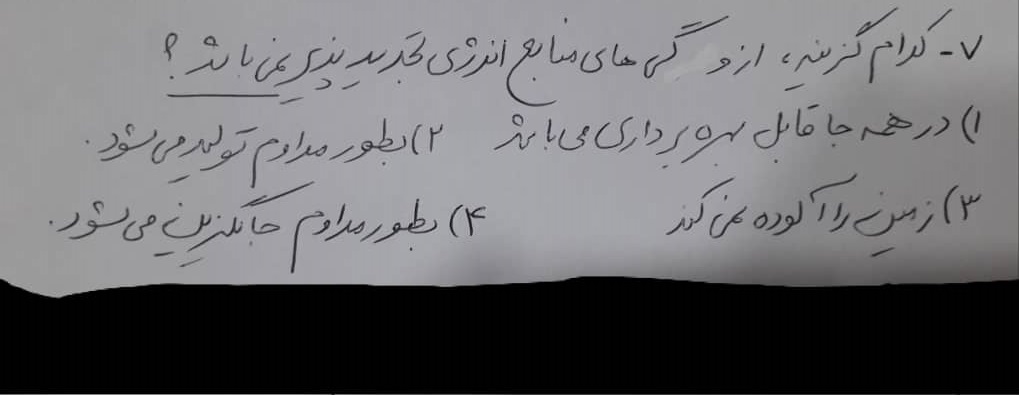 ۷- کدام گزینه، از ویژگی های منابع انرژی تجدیدپذیر نمی باشد؟
۱) در همه جا قابل بهره برداری می باشد ۲) بطور مداوم تولید می شود.
۳) زمین را آلوده نمی کند ۴) بطور مداوم جایگزین می شود.